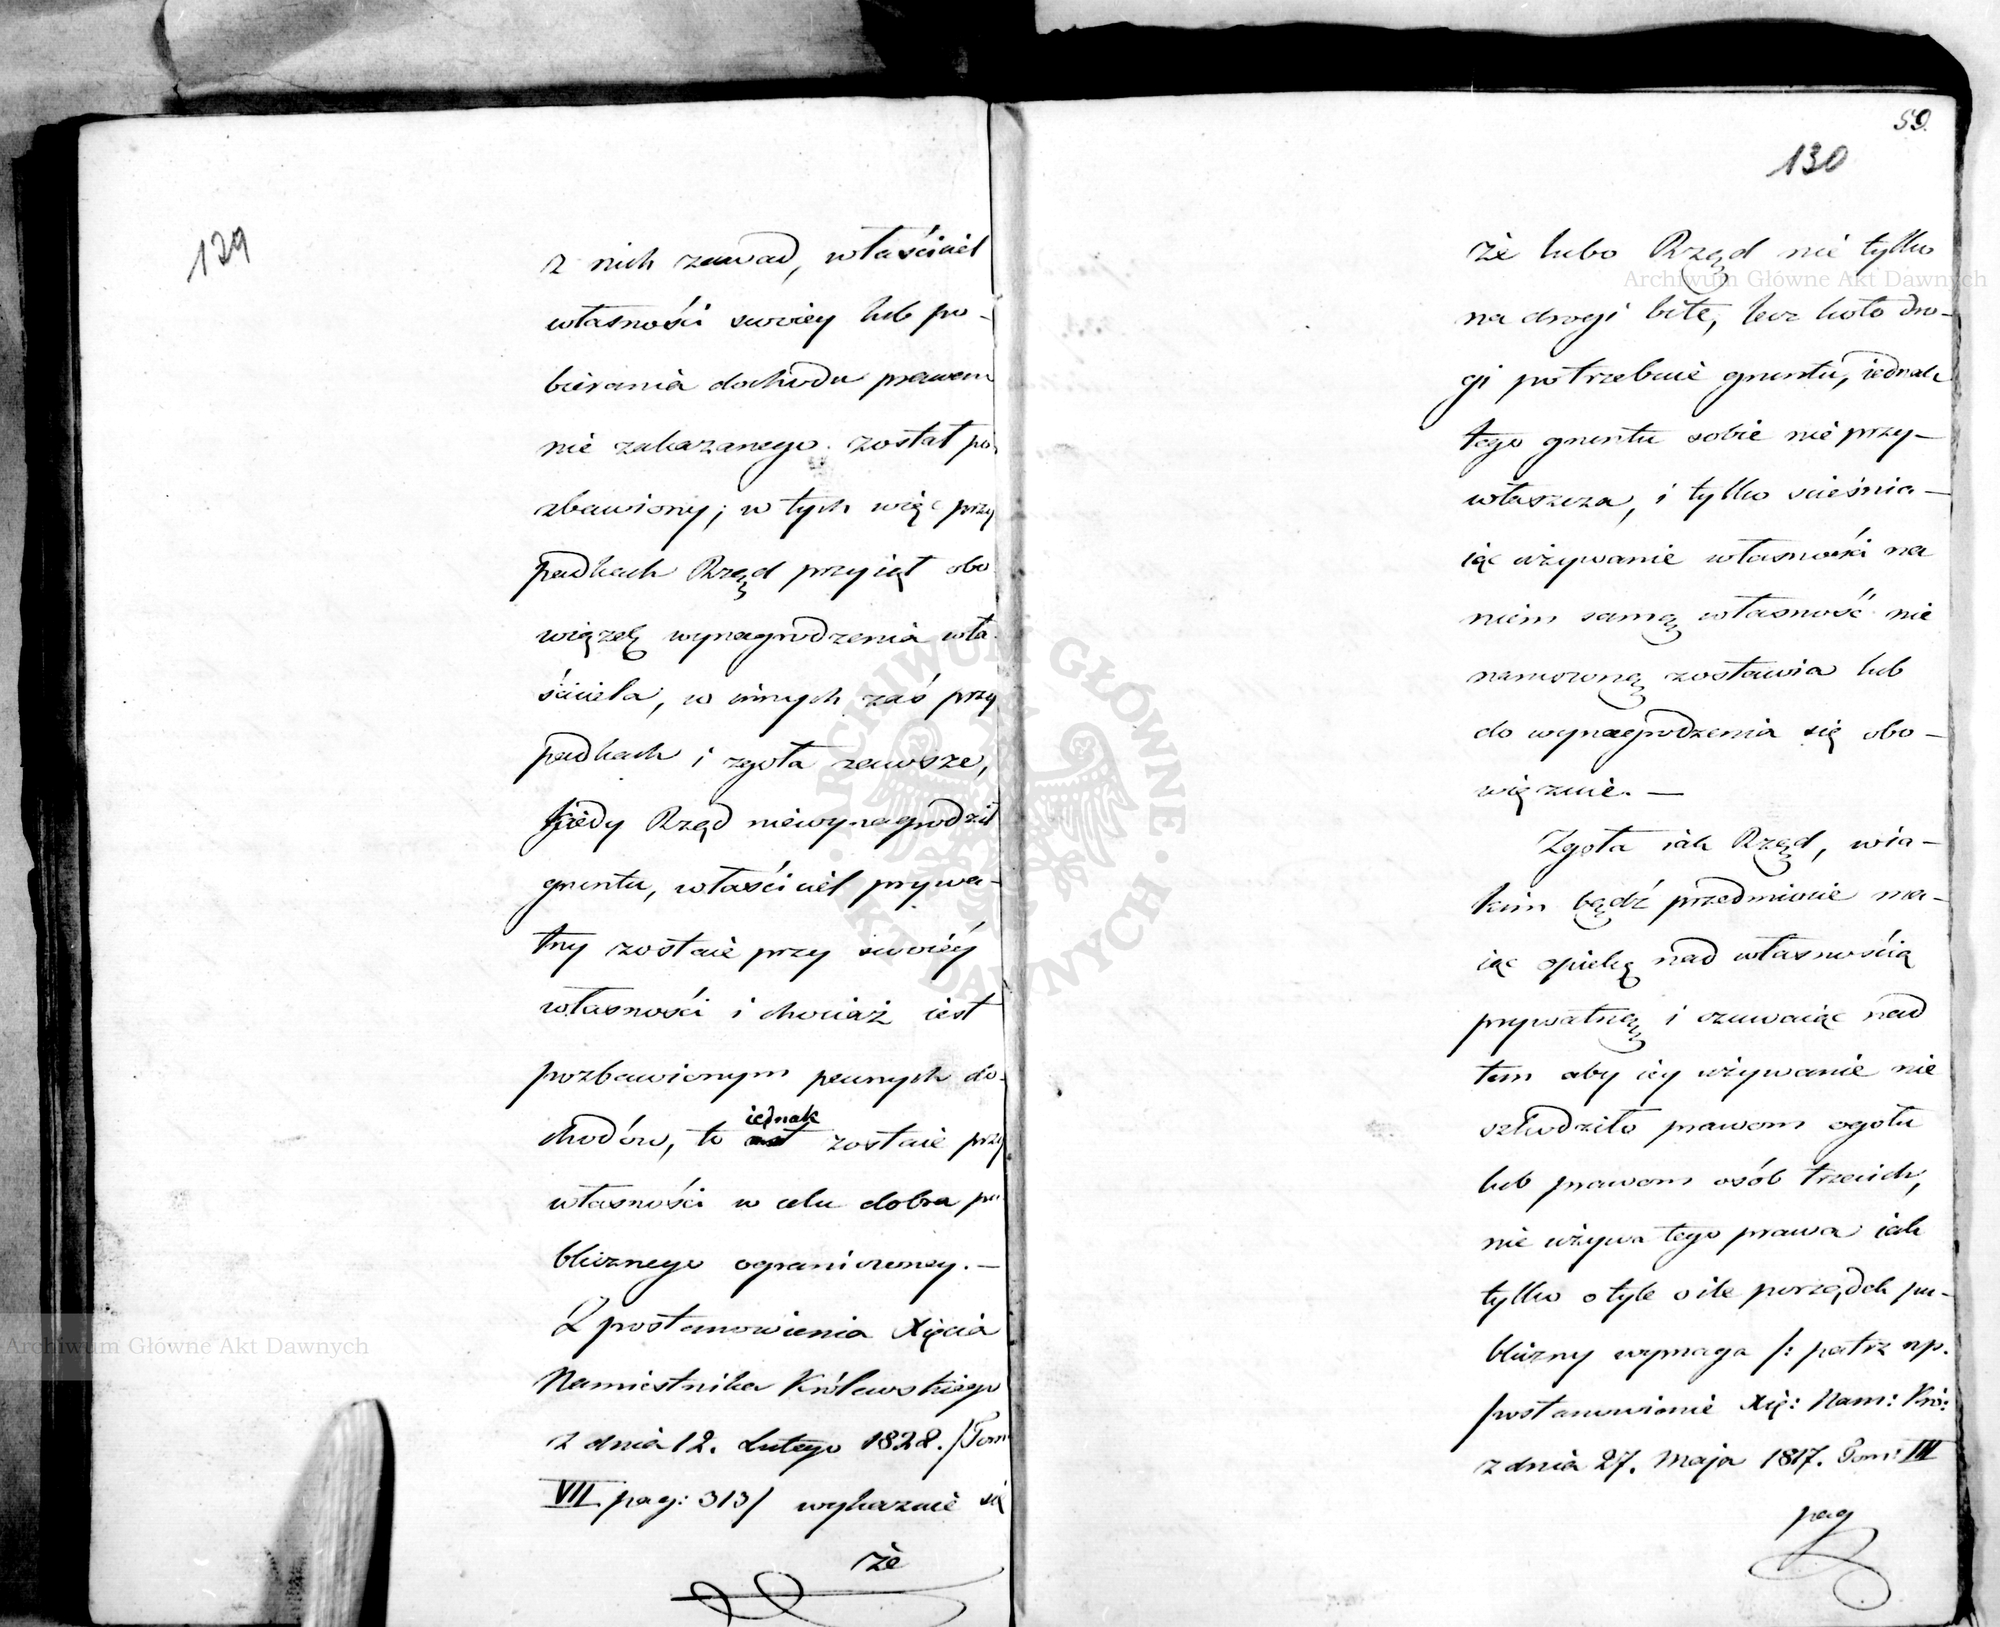 129
z nich zawad, właściciel
własności swoiey lub po-
bierania dochodu prawem
nie zakazanego został po
zbawiony; w tych więc przy
padkach Rząd przyiął obo
wiązek wynagrodzenia wła
ściciela, w innych zaś przy
padkach i zgoła zawsze,
kiedy Rząd niewynagrodził
gruntu, właściciel prywa-
tny zostaie przy swoiéy
własności i chociaż iest
pozbawionym pewnych do-
chodów, to iednak zostaie przy
własności w celu dobra pu
blicznego ograniczoney. —
Z postanowienia Xięcia
Namiestnika Królewskiego
z dnia 12. Lutego 1828. /Tom
VII. pag: 313/ wykazuie się
że
59.
130
że lubo Rząd nie tylko
na drogi bite, lecz koło dro-
gi potrzebuie gruntu, iednak
tego gruntu sobie nie przy-
właszcza, i tylko ścieśnia-
iąc używanie własności na
niem samą własność nie
naruszoną zostawia lub
do wynagrodzenia się obo-
więzuie. —
Zgoła iak Rząd, w ia-
kim bądź przedmiocie ma-
iąc opiekę nad własnością
prywatną i czuwaiąc nad
tem aby iey używanie nie
szkodziło prawom ogółu
lub prawom osób trzecich,
nie używa tego prawa iak
tylko o tyle o ile porządek pu-
bliczny wymaga /: patrz np.
postanowienie Xię: Nam: Kró:
z dnia 27. Maja 1817. Tom: III
pag
Archiwum Główne Akt Dawnych
Archiwum Główne Akt Dawnych
ARCHIWUM GŁÓWNE · AKT DAWNYCH ·